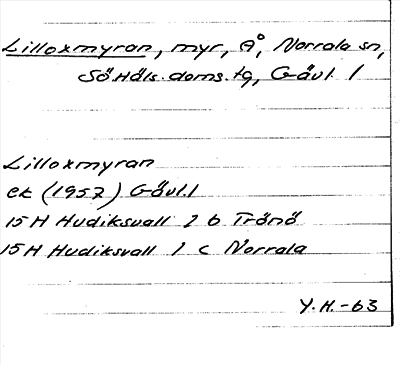 Lilloxmyran, myr, Å, Norrala sn,
SöHäls. doms. tg, Gävl. l
Lilloxmyran
ek (1957) Gävl. l
15 H Hudiksvall 2 b Trönö
15 H Hudiksvall 1 c Norrala
Y.H.-63